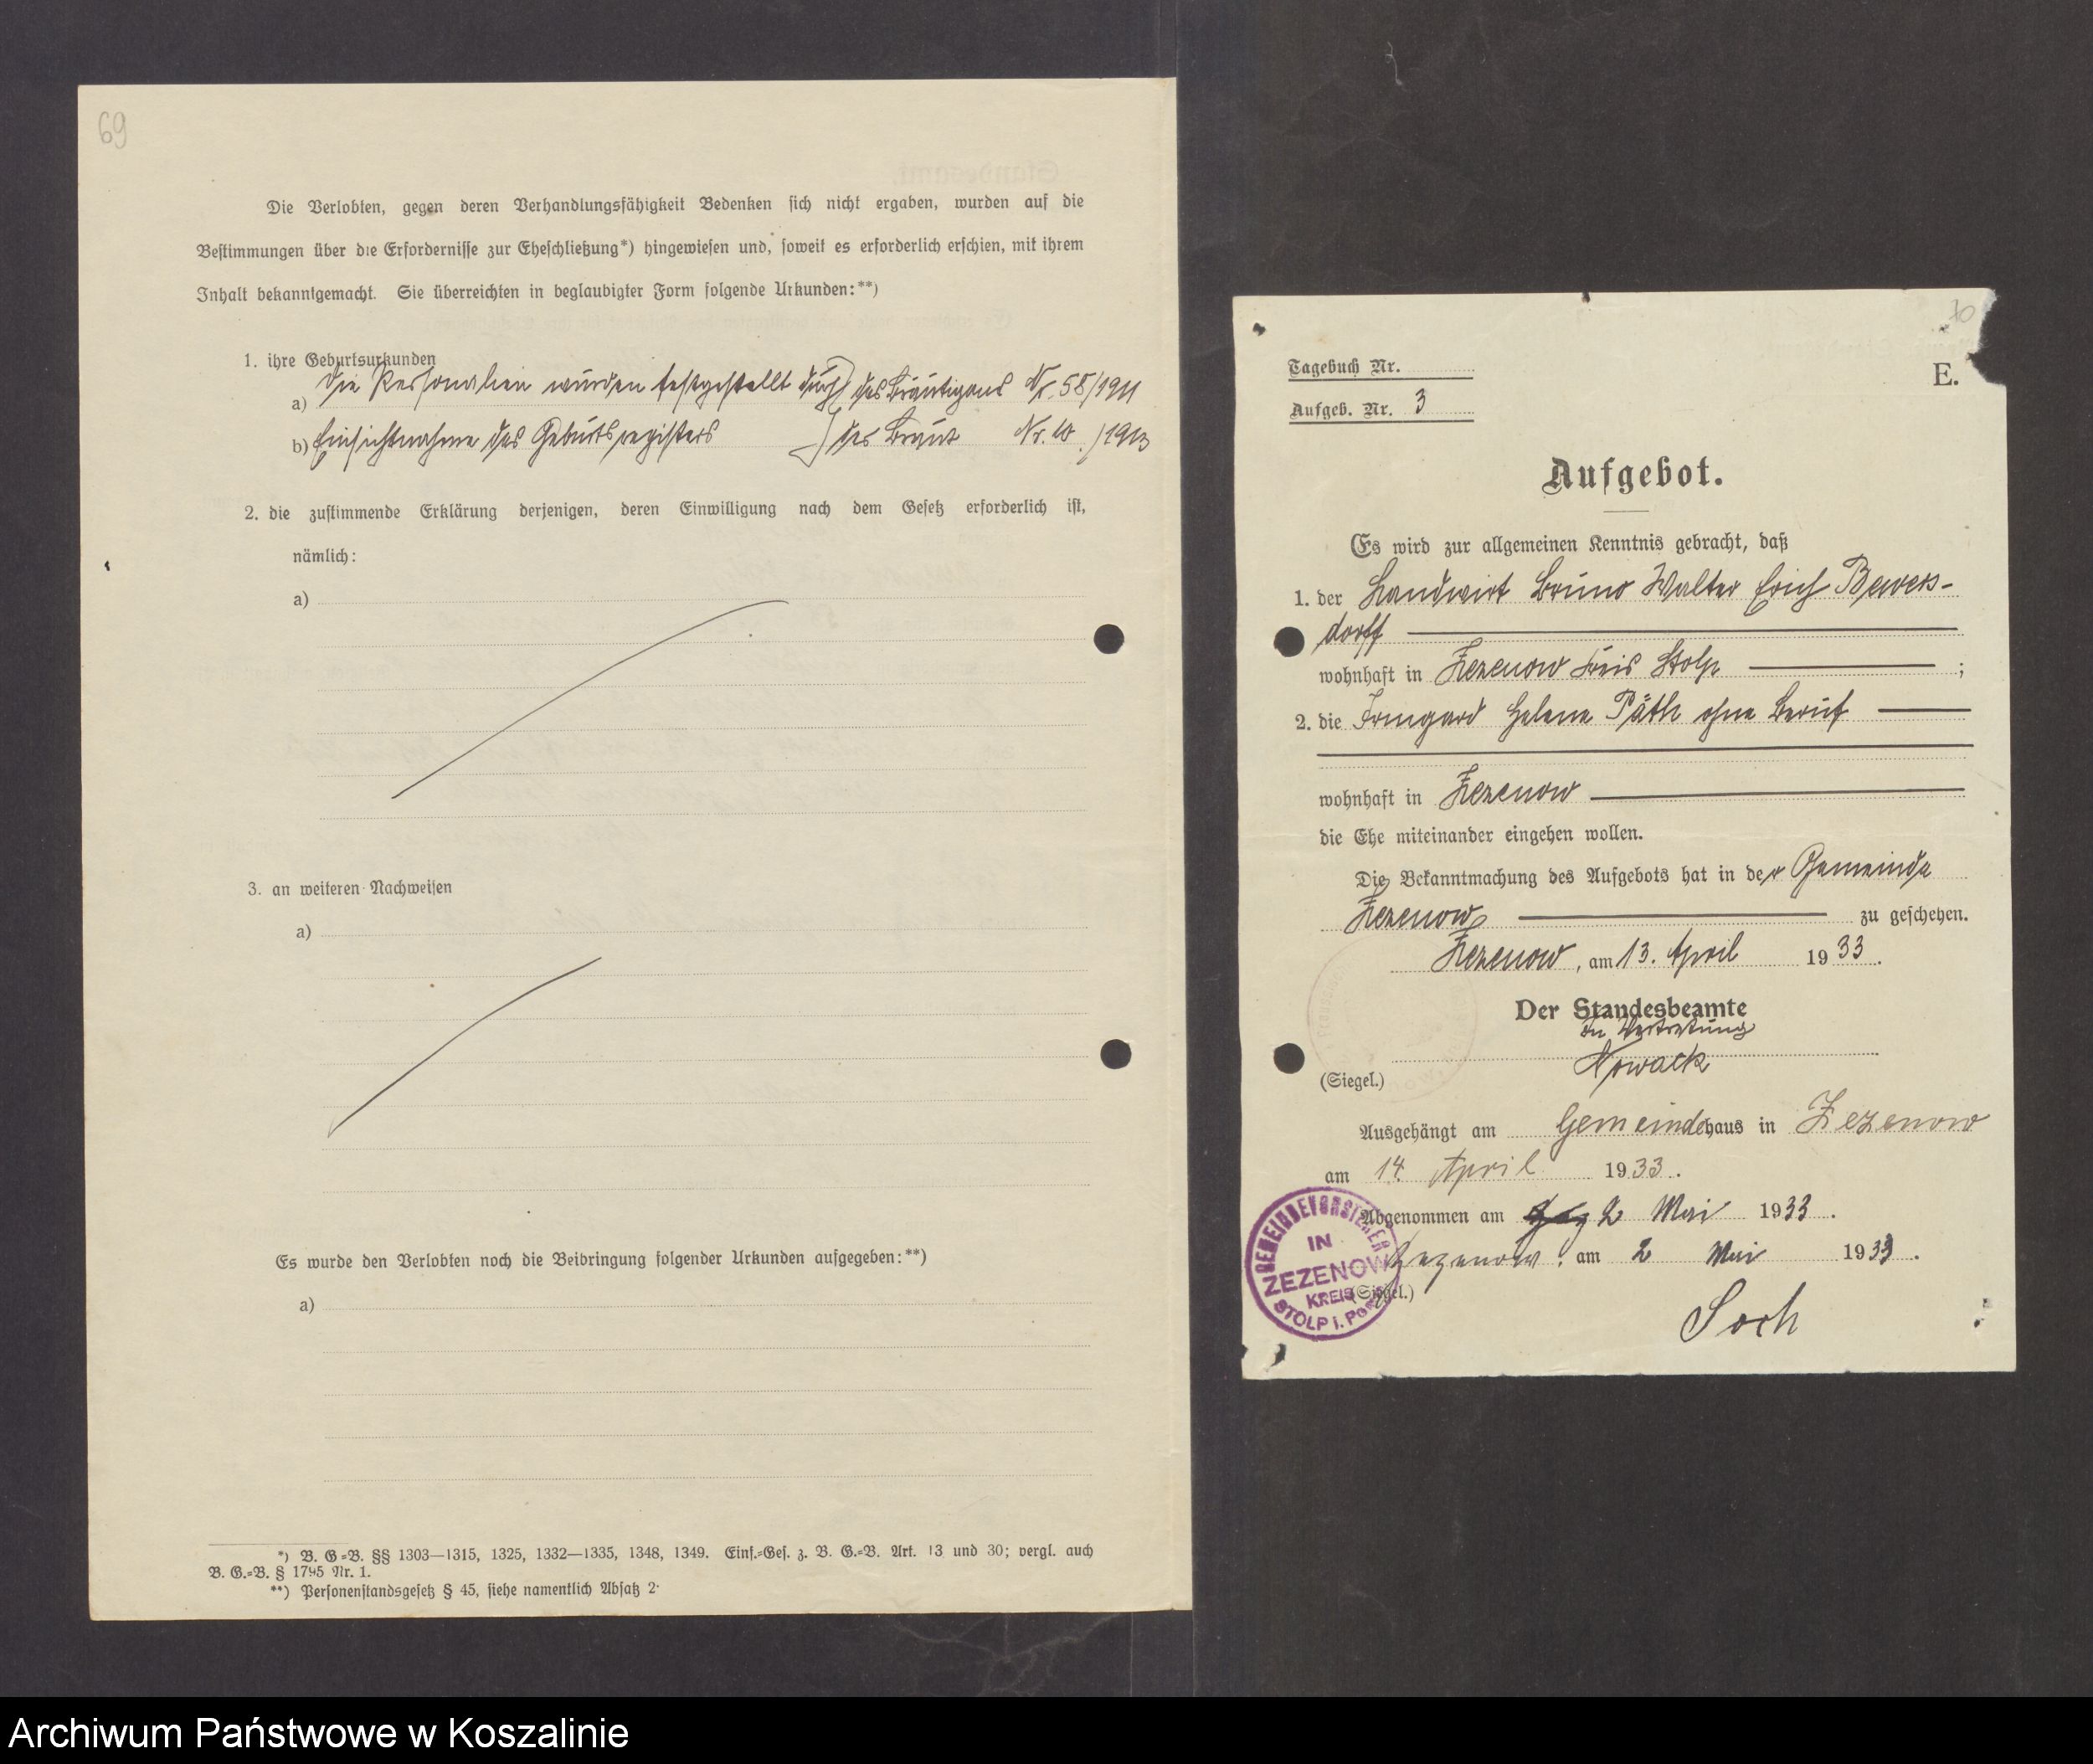 69
Die Verlobten, gegen deren Verhandlungsfähigkeit Bedenken sich nicht ergaben, wurden auf die
Bestimmungen über die Erfordernisse zur Eheschließung*) hingewiesen und, soweit es erforderlich erschien, mit ihrem
Inhalt bekanntgemacht. Sie überreichten in beglaubigter Form folgende Urkunden:**)
1. ihre Geburtsurkunden
a) Die Personalien wurden festgestellt durch des Bräutigams Nr. 58/1911
b) Einsichtnahme des Geburtsregisters der Braut Nr. 10 /1913
2. die zustimmende Erklärung derjenigen, deren Einwilligung nach dem Gesetz erforderlich ist,
nämlich:
a)
3. an weiteren Nachweisen
a)
Es wurde den Verlobten noch die Beibringung folgender Urkunden aufgegeben:**)
a)
*) B. G=B. §§ 1303—1315, 1325, 1332—1335, 1348, 1349. Einf.=Ges. z. B. G.=B. Art. 13 und 30; vergl. auch
B. G.=B. § 1795 Nr. 1.
**) Personenstandsgesetz § 45, siehe namentlich Absatz 2.
70
Tagebuch Nr.
E.
Aufgeb. Nr. 3
Aufgebot.
Es wird zur allgemeinen Kenntnis gebracht, daß
1. der Landwirt Bruno Walter Erich Bewers-
dorff
wohnhaft in Zezenow Kreis Stolp ;
2. die Irmgard Helene Päth ohne Beruf
wohnhaft in Zezenow
die Ehe miteinander eingehen wollen.
Die Bekanntmachung des Aufgebots hat in der Gemeinde
Zezenow zu geschehen.
Zezenow, am 13. April 1933.
Der Standesbeamte
In Vertretung
Nowack
(Siegel.)
Ausgehängt am Gemeindehaus in Zezenow
am 14. April 1933.
Abgenommen am 2 Mai 1933.
Zezenow. am 2 Mai 1933.
(Siegel.)
GEMEINDEVORSTEHER
IN
ZEZENOW
KREIS
STOLP i. Pom.
Soch
Archiwum Państwowe w Koszalinie